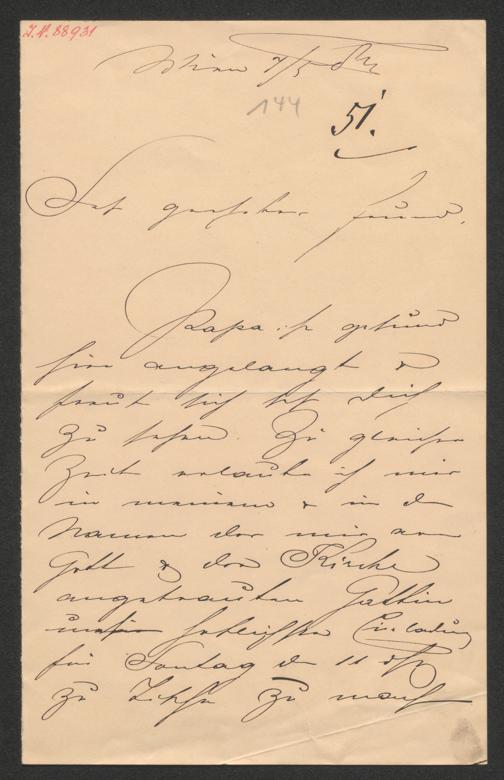 I.N. 88931
Wien 7/5
144
51.
Sehr geehrter Freund,
Papa ist gesund
hier angelangt &
freut sich sehr Dich
zu sehen. Zu gleicher
Zeit erlaube ich mir
in meinem & in d
Namen der mir von
Gott & der Kirche
angetrauten Gattin
unsere Einladung
für Sontag d 11 d
zu Tische zu